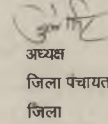 अध्यक्ष
जिला पंचायत
जिला